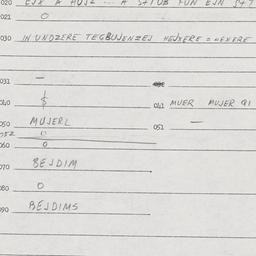 020 EJX A HOJZ ... A ST UB FUN EJN
021 0
030 IN UNDZERE TEGBUJENZEJ HEJXERE = HEXERE
031 —
040 041 MUER MUJER 91
050 MUJERL 051 —
052 0
060 0
070 BEJDIM
080 0
090 BEJDIMS